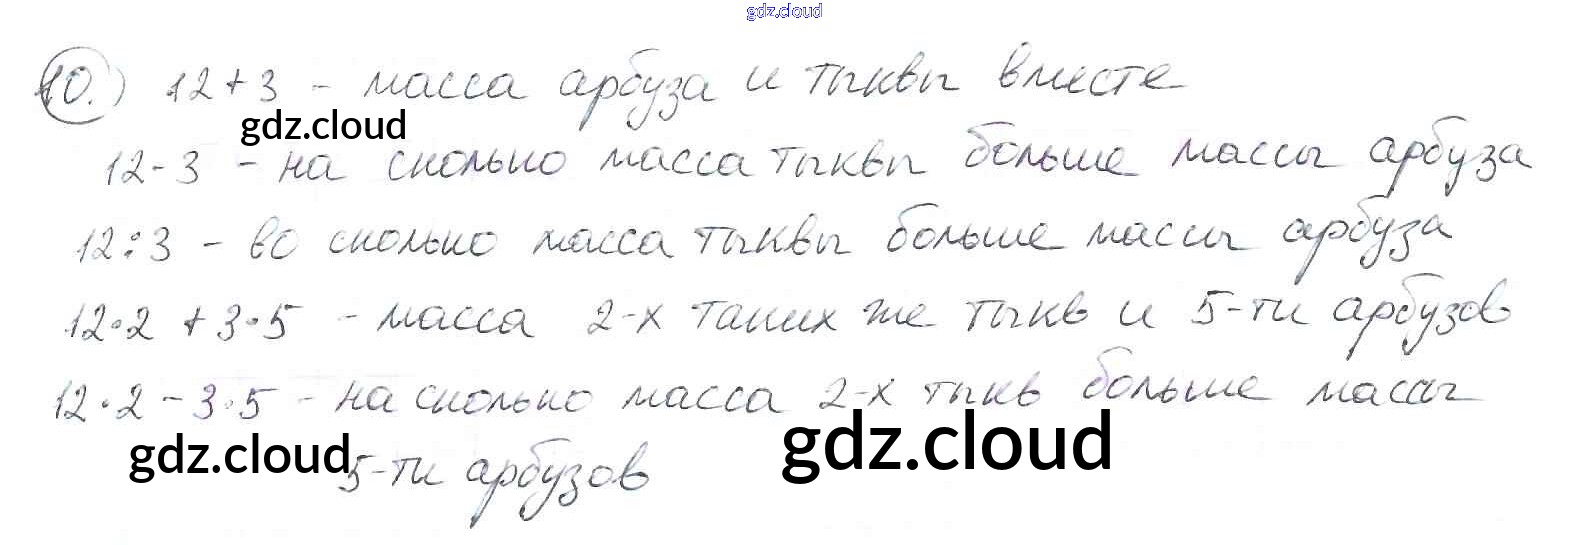 gdz.cloud
10.) 12+3 - масса арбуза и тыквы вместе
gdz.cloud
12-3 - на сколько масса тыквы больше массы арбуза
12:3 - во сколько масса тыквы больше массы арбуза
12·2 + 3·5 - масса 2-х таких же тыкв и 5-ти арбузов
12·2 - 3·5 - на сколько масса 2-х тыкв больше массы
gdz.cloud 5-ти арбузов gdz.cloud